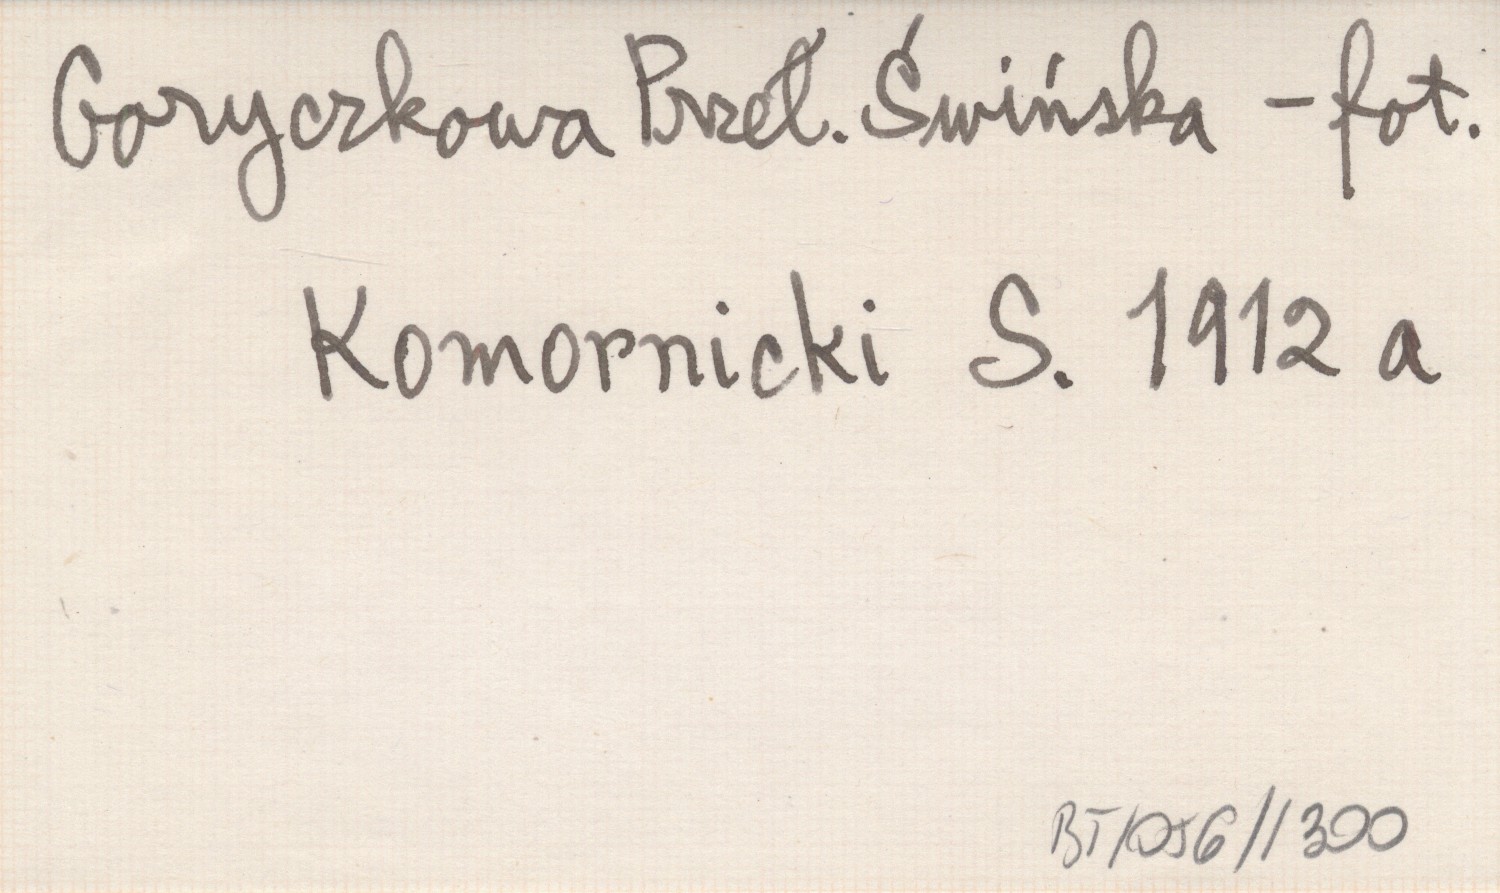 Goryczkowa Przeł. Świńska - fot.
Komornicki S. 1912 a
BT/056/1300